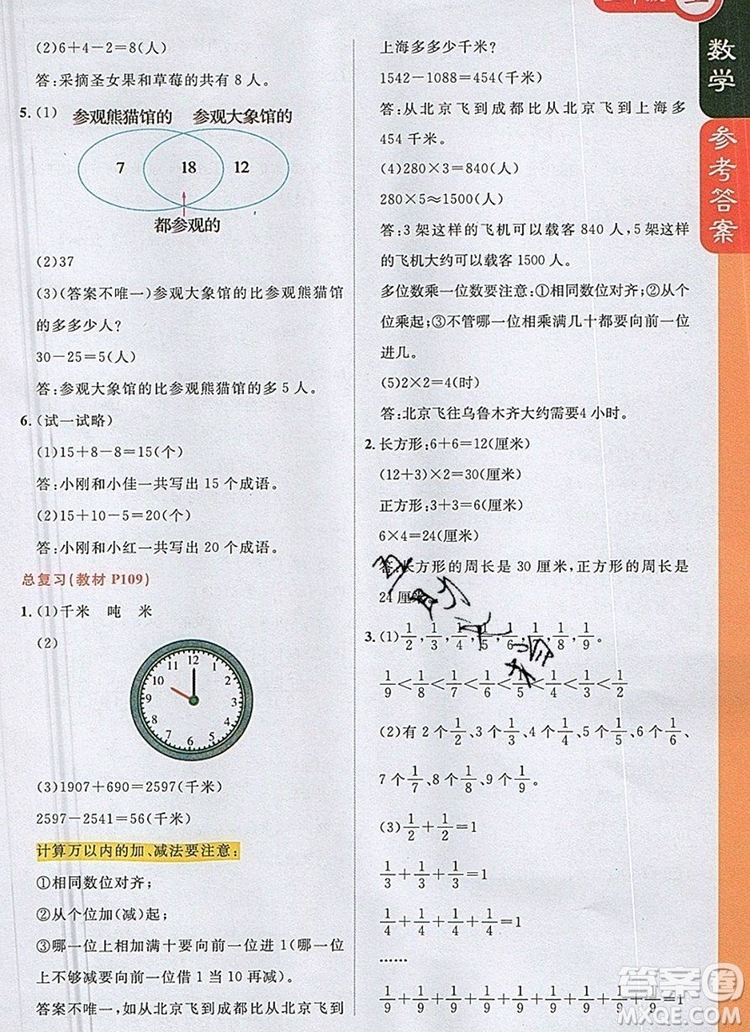 (2)6+4-2=8(人)
答:采摘圣女果和草莓的共有 8 人。
5.(1) 参观熊猫馆的 参观大象馆的
7 18 12
都参观的
(2)37
(3)(答案不唯一)参观大象馆的比参观熊猫馆
的多多少人?
30-25=5(人)
答:参观大象馆的比参观熊猫馆的多 5 人。
6.(试一试略)
(1)15+8-8=15(个)
答:小刚和小佳一共写出 15 个成语。
(2)15+10-5=20(个)
答:小刚和小红一共写出 20 个成语。
总复习(教材 P109)
1.(1)千米 吨 米
(2)
12
1
2
3
4
5
6
7
8
9
10
11
(3)1907+690=2597(千米)
2597-2541=56(千米)
计算万以内的加、减法要注意:
①相同数位对齐;
②从个位加(减)起;
③哪一位上相加满十要向前一位进 1,哪一位
上不够减要向前一位借 1 当 10 再减。
答案不唯一,如从北京飞到成都比从北京飞到
上海多多少千米?
1542-1088=454(千米)
答:从北京飞到成都比从北京飞到上海多
454 千米。
(4)280×3=840(人)
280×5≈1500(人)
答:3 架这样的飞机可以载客 840 人,5 架这样
的飞机大约可以载客 1500 人。
多位数乘一位数要注意:①相同数位对齐;②从个
位乘起;③不管哪一位相乘满几十都要向前一位
进几。
(5)2×2=4(时)
答:北京飞往乌鲁木齐大约需要 4 小时。
2.长方形:6+6=12(厘米)
(12+3)×2=30(厘米)
正方形:3+3=6(厘米)
6×4=24(厘米)
答:长方形的周长是 30 厘米,正方形的周长是
24 厘米。
3.(1)1/2,1/3,1/4,1/5,1/6,1/7,1/8,1/9。
1/9<1/8<1/7<1/6<1/5<1/4<1/3<1/2
(2)有 2 个1/2、3 个1/3、4 个1/4、5 个1/5、6 个1/6、
7 个1/7、8 个1/8、9 个1/9。
(3)1/2+1/2=1
1/3+1/3+1/3=1
1/4+1/4+1/4+1/4=1
……
1/9+1/9+1/9+1/9+1/9+1/9+1/9+1/9+1/9=1
数学
参考答案
答案圈
MXQE.COM